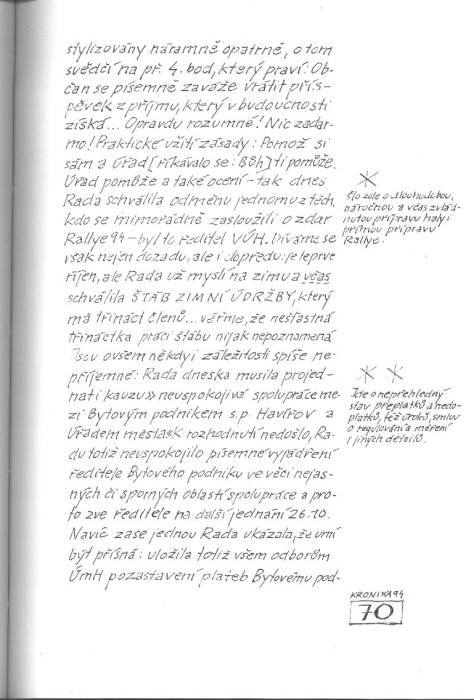 stylizovány náramně opatrně, o tom
svědčí na př. 4. bod, který praví: Ob-
čan se písemně zaváže vrátit přís-
pěvek z příjmu, který v budoucnosti
získá... Opravdu rozumné! Nic zadar-
mo! Praktické užití zásady: Pomož si
sám a Úřad [říkávalo se: Bůh] ti pomůže.
Úřad pomůže a také ocení – tak dnes
Rada schválila odměnu jednomu z těch,
kdo se mimořádně zasloužili o zdar
Rallye 94 – byl to ředitel VÚH. Díváme se
však nejen dozadu, ale i dopředu: je teprve
říjen, ale Rada už myslí na zimu a včas
schválila ŠTÁB ZIMNÍ ÚDRŽBY, který
má třináct členů... věřme, že nešťastná
třináctka práci štábu nijak nepoznamená
Jsou ovšem někdy i záležitosti spíše ne-
příjemné: Rada dneska musila projed-
nati kauzu » neuspokojivá spolupráce me-
zi Bytovým podnikem s.p. Havířov a
Úřadem města « k rozhodnutí nedošlo, Ra-
du totiž neuspokojilo písemné vyjádření
ředitele Bytového podniku ve věci nejas-
ných či sporných oblastí spolupráce a pro-
to zve ředitele na další jednání 26.10.
Navíc zase jednou Rada ukázala, že umí
být přísná: uložila totiž všem odborům
ÚmH pozastavení plateb Bytovému pod-
*
Šlo zde o dlouhodobou,
náročnou a včas zvlád-
nutou přípravu haly i
přímou přípravu
Rallye.
* *
Jde o nepřehledný
stav přeplatků a nedo-
platků, též úroků, smluv
o regulování a měření
i jiných detailů.
KRONIKA 94
70